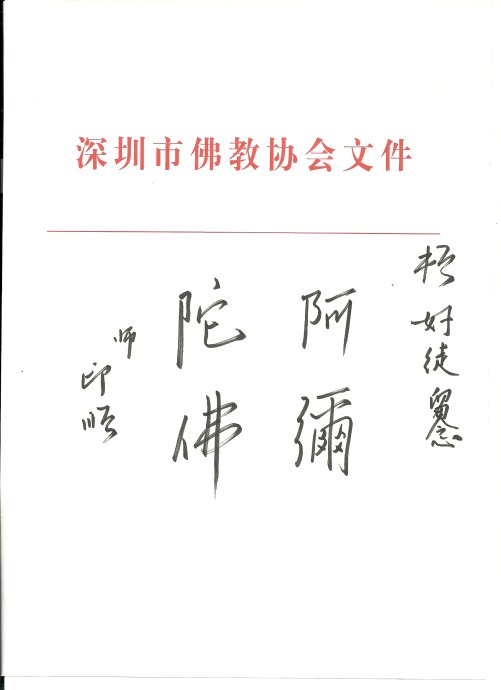 深圳市佛教协会文件
好徒留念
阿彌
陀佛
师
印顺